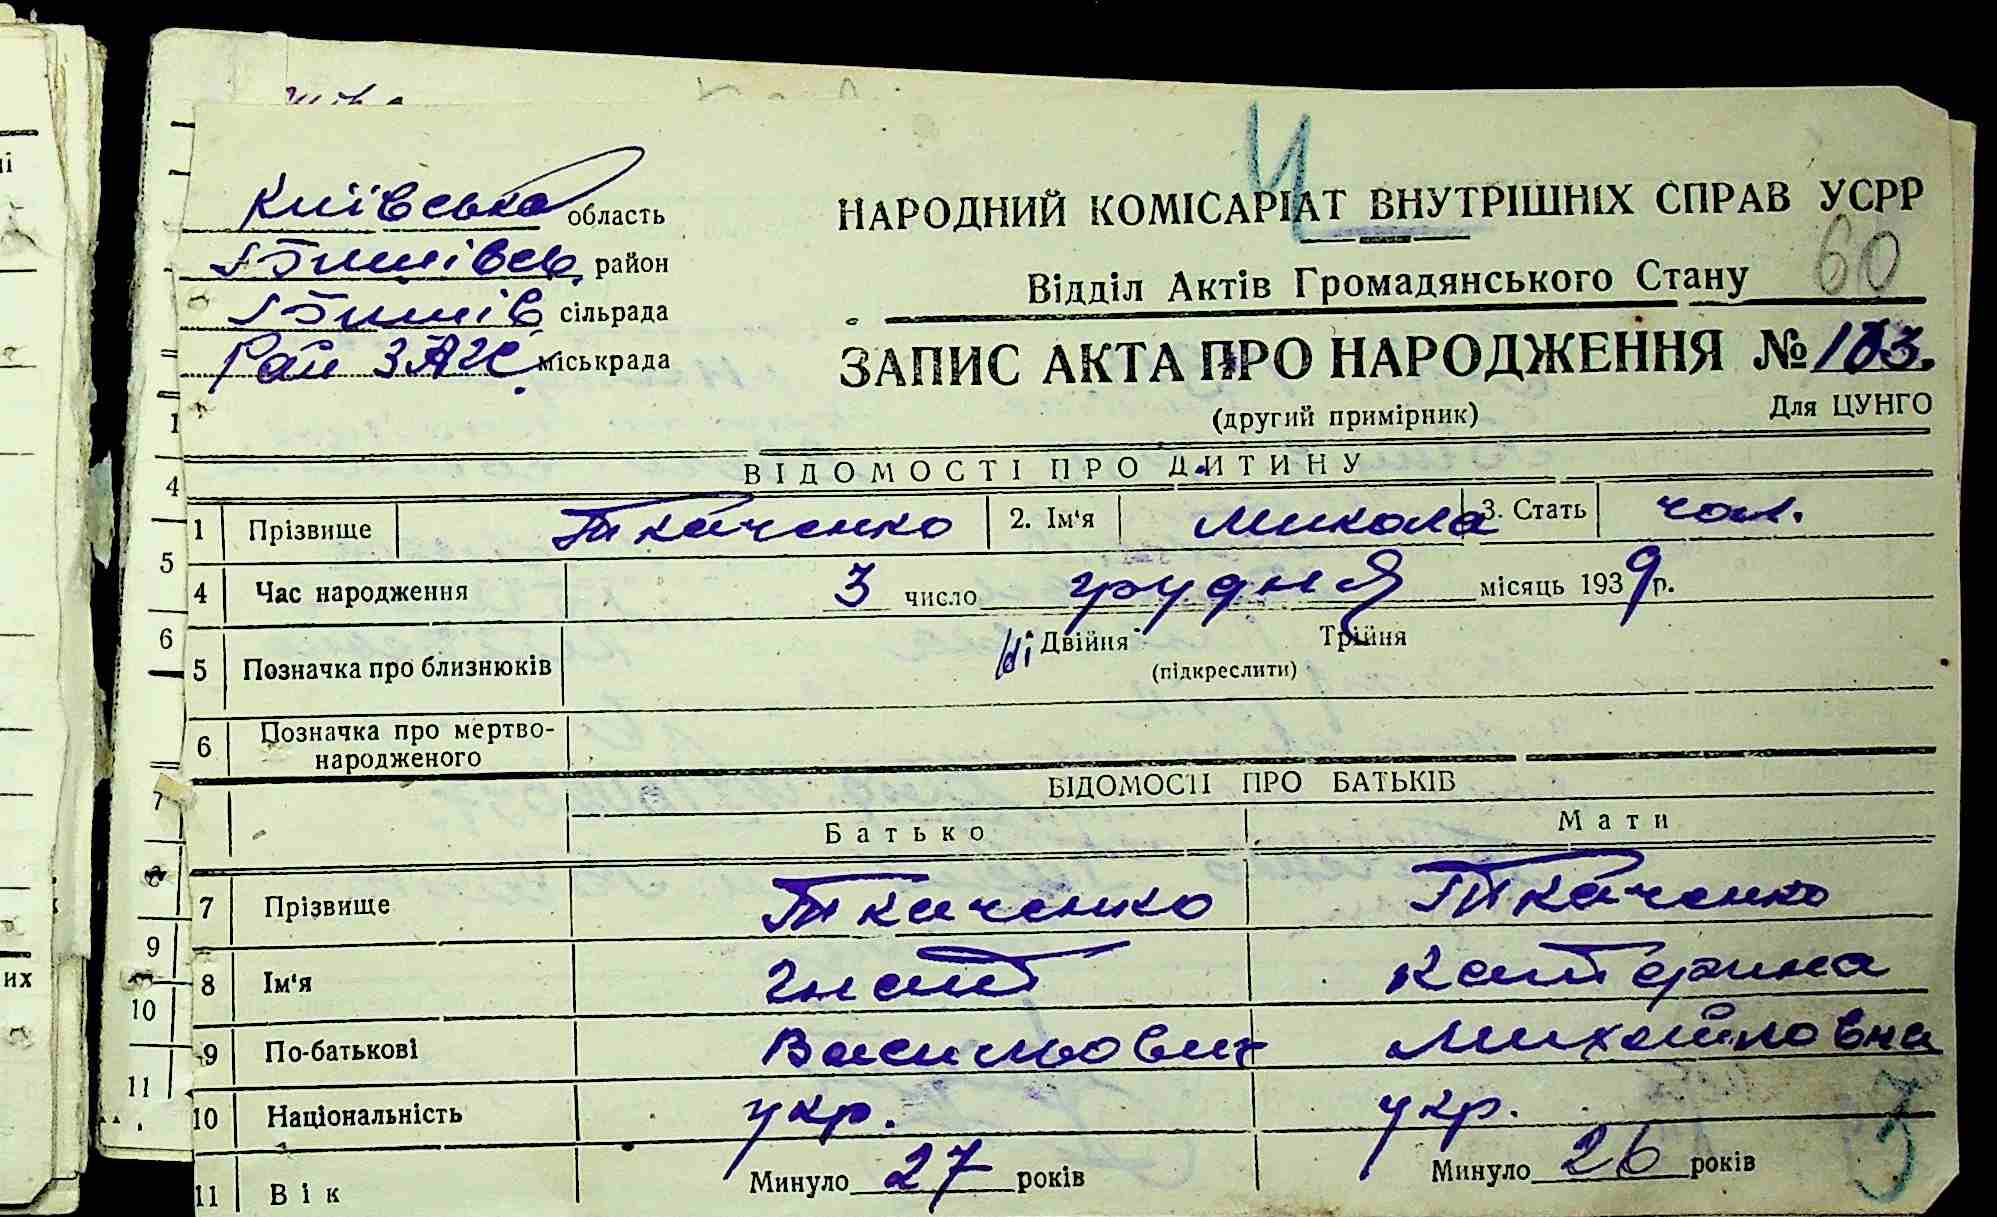 Ч
Київська область
район
сільрада
Рай ЗАГС міськрада
НАРОДНИЙ КОМІСАРІАТ ВНУТРІШНІХ СПРАВ УСРР
60
Відділ Актів Громадянського Стану
ЗАПИС АКТА ПРО НАРОДЖЕННЯ № 103.
(другий примірник) Для ЦУНГО
ВІДОМОСТІ ПРО ДИТИНУ
1 Прізвище Ткаченко 2. Ім'я Микола 3. Стать чол.
4 Час народження 3 число грудня місяць 1939 р.
5 Позначка про близнюків Ні Двійня Трійня
(підкреслити)
6 Позначка про мертво-
народженого
ВІДОМОСТІ ПРО БАТЬКІВ
Батько Мати
7 Прізвище Ткаченко Ткаченко
8 Ім'я Гнат Катерина
9 По-батькові Васильович Михайловна
10 Національність укр. укр.
11 Вік Минуло 27 років Минуло 26 років
3
4
5
6
7
8
9
10
11
их